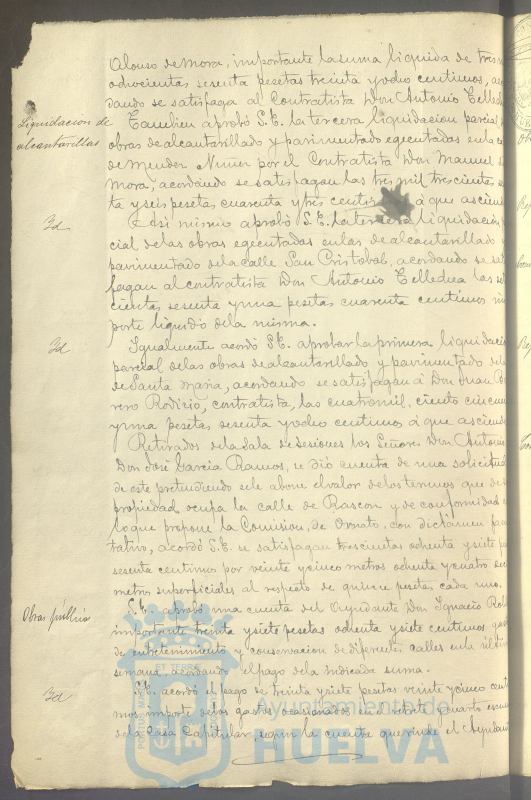 Alonso de Mora, importante la suma liquida de tres mil
ochocientas sesenta pesetas treinta y ocho centimos, acor
dando se satisfaga al Contratista Don Antonio Telledea
Liquidacion de alcantarillas
Tambien aprobó S.E. la tercera liquidacion parcial
obras de alcantarillado y pavimentado egecutadas en la
de Mendez Nuñez por el Contratista Don Manuel
Mora, acordando se satisfagan las tres mil trescientas
ta y seis pesetas cuarenta y tres centimos á que asciende
Id
Asi mismo aprobó S.E. la tercera liquidacion
cial de las obras egecutadas en las de alcantarillado y
pavimentado de la calle San Cristobal, acordando se satis
fagan al contratista Don Antonio Telledea las
cientas sesenta y una pesetas cuarenta centimos im
porte liquido de la misma.
Id
Igualmente acordó S.E. aprobar la primera liquidacion
parcial de las obras de alcantarillado y pavimentado de la
de Santa Maria, acordando se satisfagan á Don Juan
rero Rodicio, contratista, las cuatro mil, ciento cincuen
y una pesetas, sesenta y ocho centimos á que asciende
Retirados de la Sala de Sesiones los Señores Don Antonio
Don José Garcia Ramos, se dió cuenta de una solicitud
de este pretendiendo se le abone el valor de los terrenos que de
propiedad ocupa la calle de Rascon y de conformidad
lo que propone la Comision de Ornato, con dictámen facul
tativo, acordó S.E. se satisfagan trescientas ochenta y siete
sesenta centimos por veinte y cinco metros ochenta y cuatro
metros superficiales al respecto de quince pesetas cada uno.
Obras publicas
S.E. aprobó una cuenta del Ayudante Don Ignacio
importante treinta y siete pesetas ochenta y siete centimos
de entretenimiento y conservacion de diferentes calles en la última
semana, acordando el pago de la indicada suma.
Id
S.E. acordó el pago de treinta y siete pesetas veinte y cinco cent
mos importe de los gastos ocasionados en el
de la Casa Capitular, segun la cuenta que rinde el Ayudante
Ayuntamiento de
HUELVA